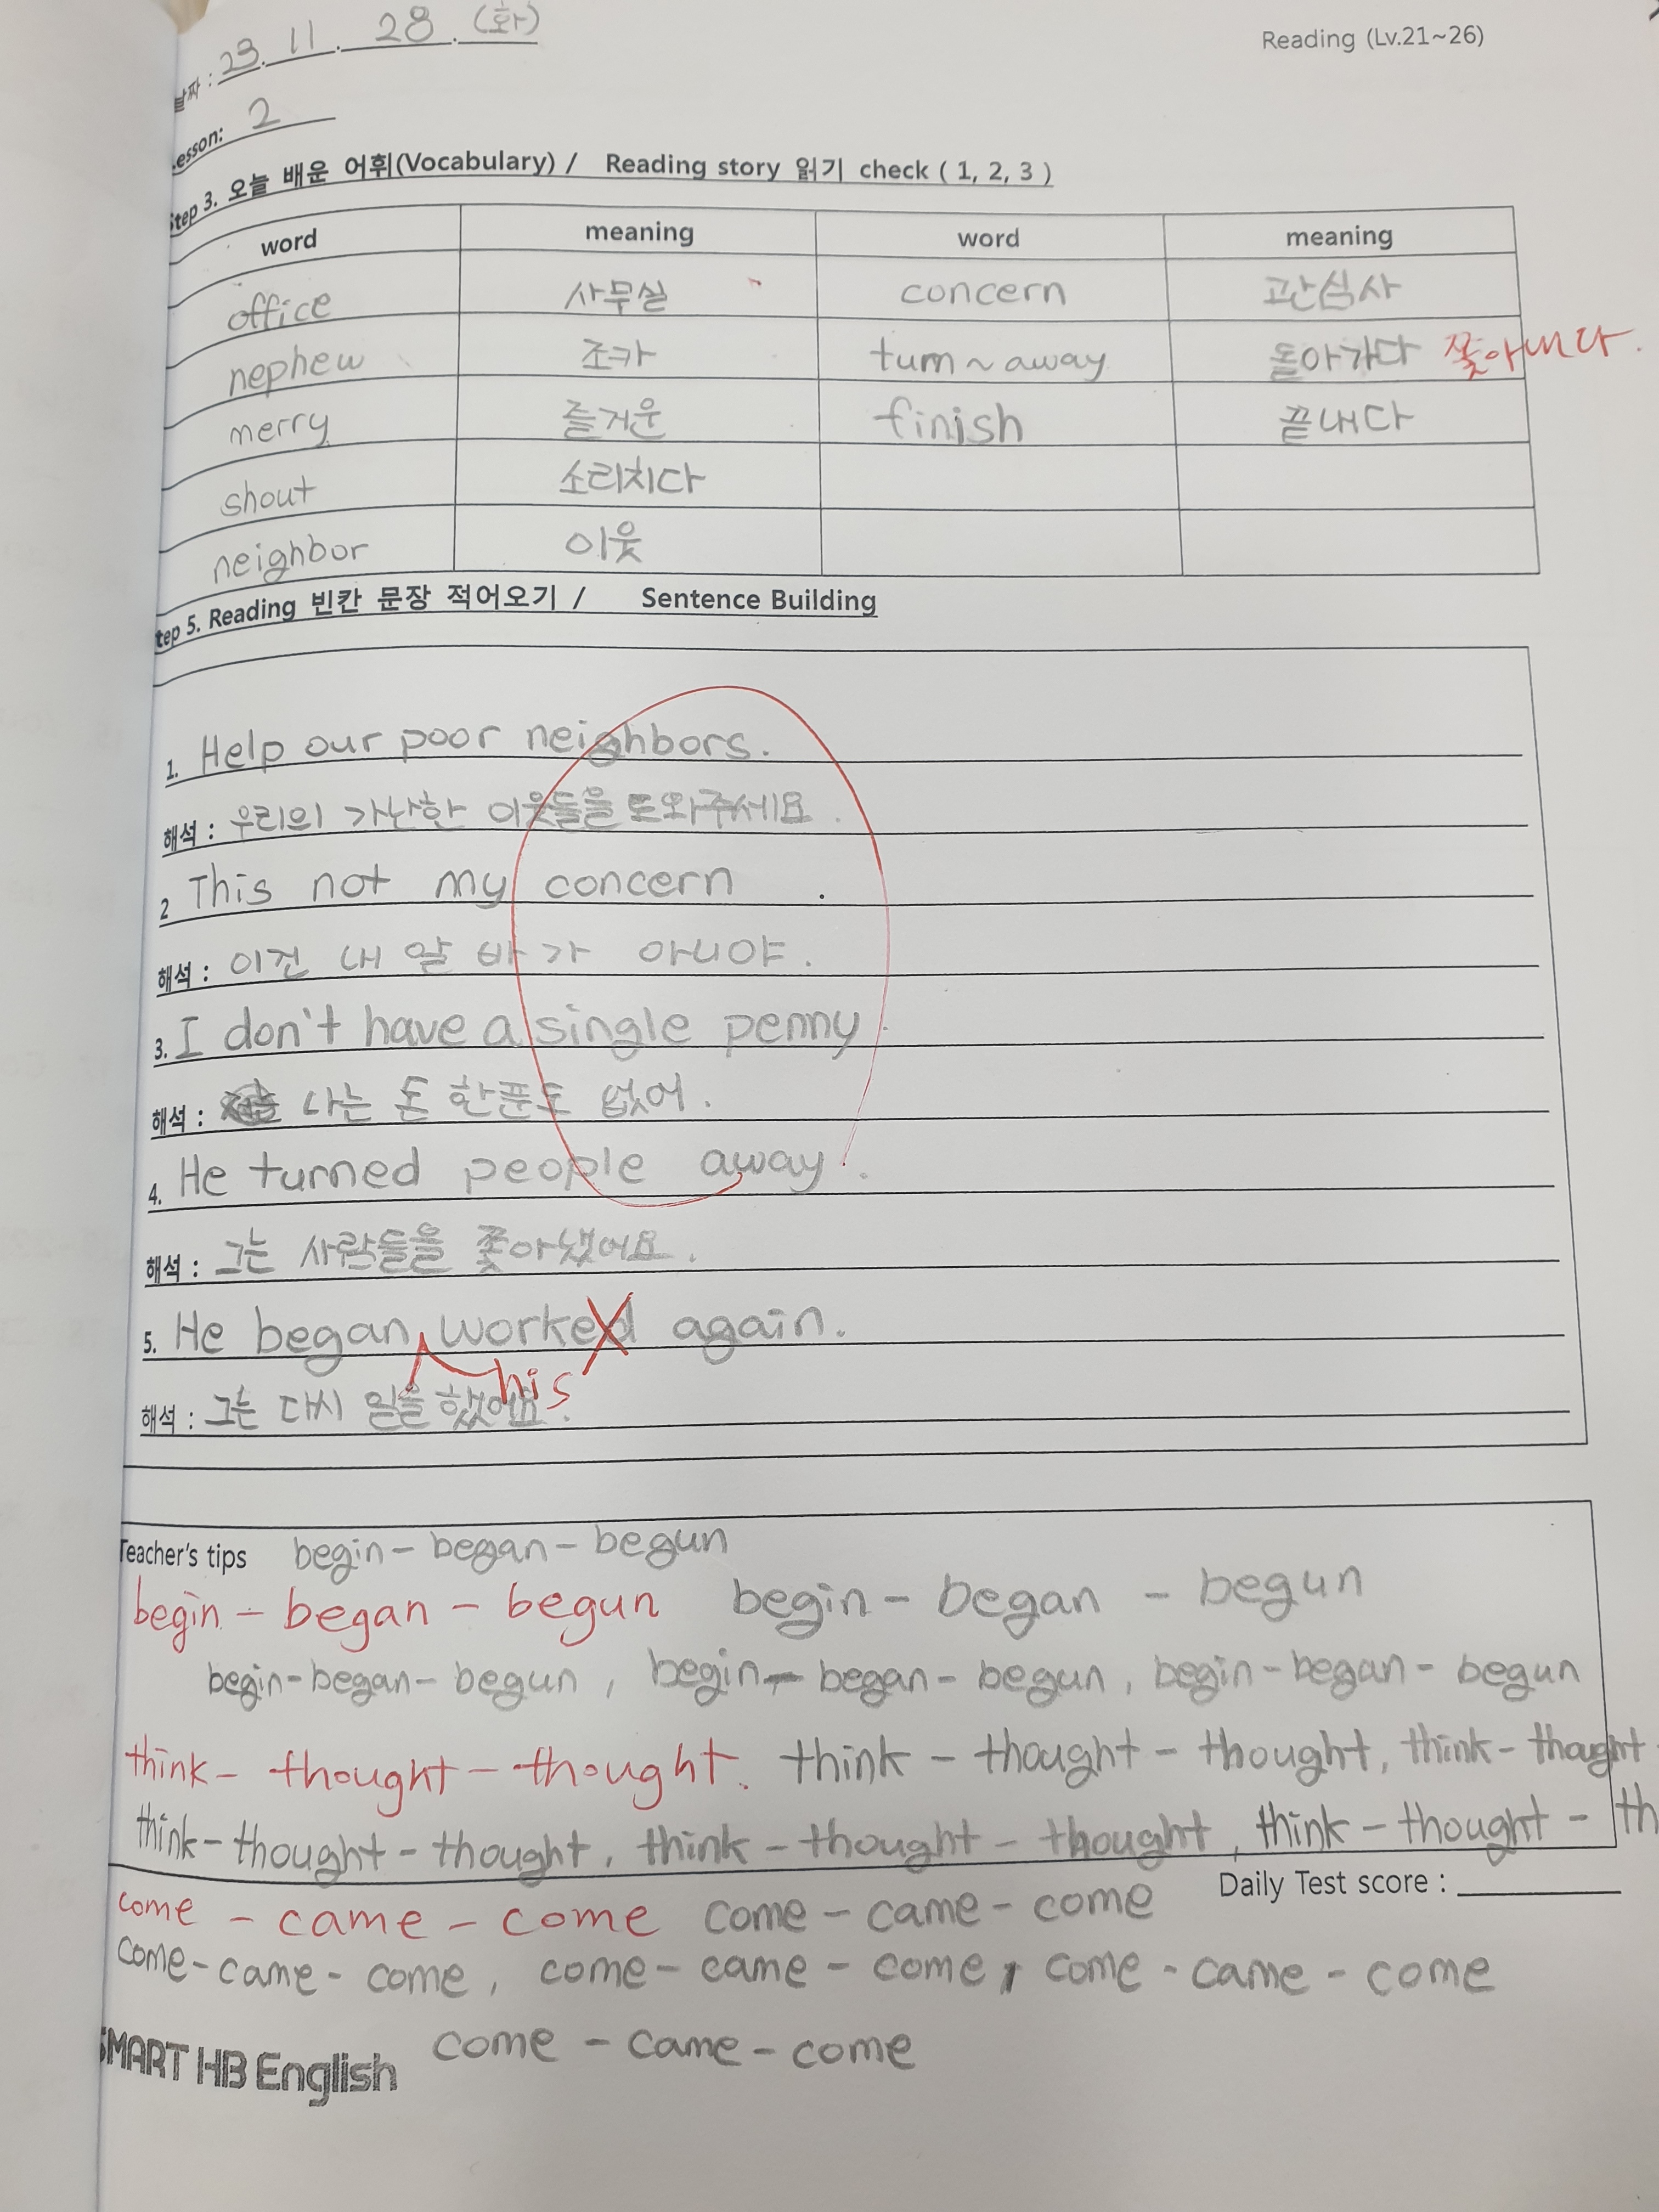 날짜 : 23. 11. 28. (화)
Reading (Lv.21~26)
Lesson: 2
Step 3. 오늘 배운 어휘(Vocabulary) / Reading story 읽기 check ( 1, 2, 3 )
word meaning word meaning
office 사무실 concern 관심사
nephew 조카 turn ~ away 돌아가다 쫓아내다.
merry 즐거운 finish 끝내다
shout 소리치다
neighbor 이웃
tep 5. Reading 빈칸 문장 적어오기 / Sentence Building
1. Help our poor neighbors.
해석 : 우리의 가난한 이웃들을 도와주세요.
2 This not my concern .
해석 : 이건 내 알 바가 아니야.
3. I don't have a single penny.
해석 : 나는 돈 한푼도 없어.
4. He turned people away.
해석 : 그는 사람들을 쫓아냈어요.
5. He began worked again.
his
해석 : 그는 다시 일을 했어요.
Teacher's tips begin - began - begun
begin - began - begun begin - began - begun
begin - began - begun , begin - began - begun , begin - began - begun
think - thought - thought. think - thought - thought, think - thought
think - thought - thought , think - thought - thought , think - thought - th
Daily Test score :
come - came - come come - came - come
come - came - come , come - came - come , come - came - come
SMART HB English come - came - come